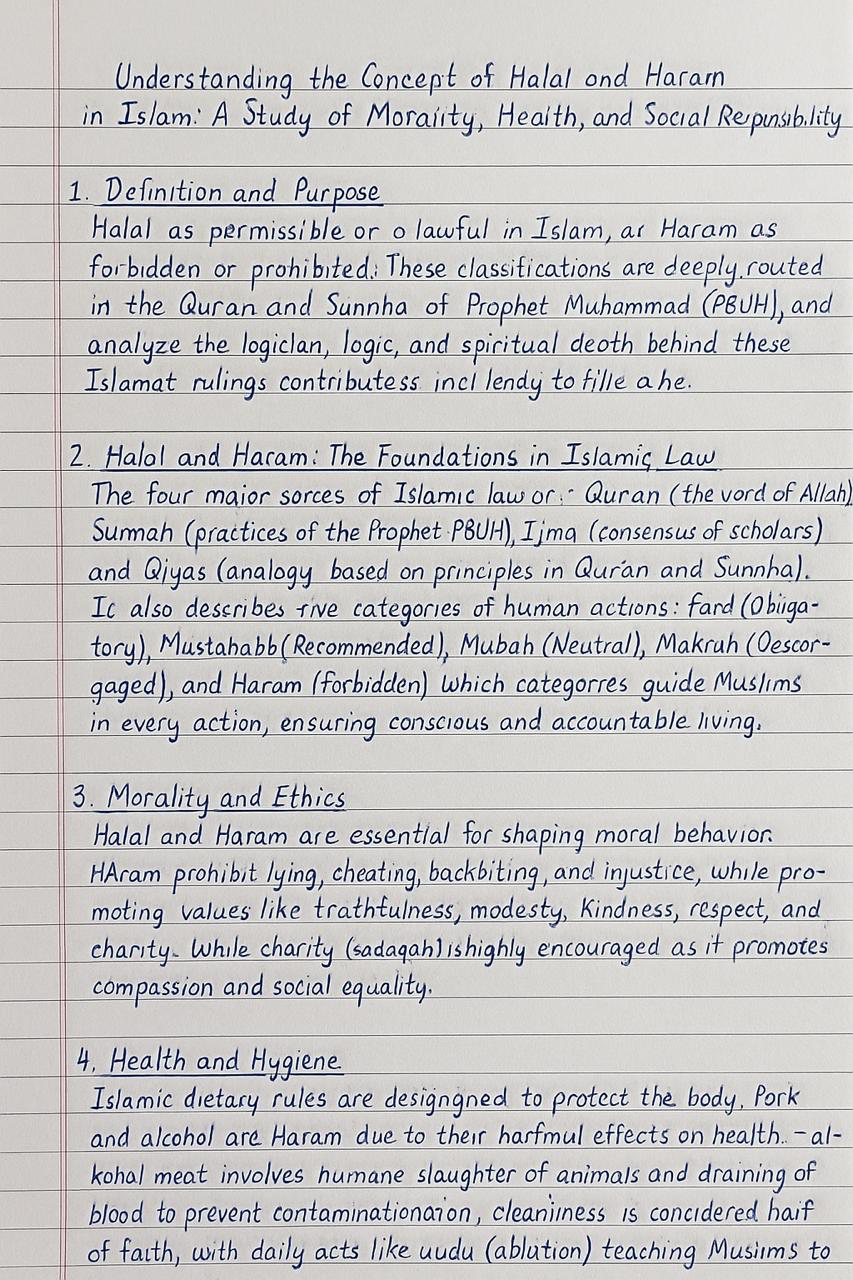 Understanding the Concept of Halal ond Haram
in Islam: A Study of Moraiity, Heaith, and Social Repunsib.lity
1. Definition and Purpose
Halal as permissible or o lawful in Islam, ar Haram as
forbidden or prohibited.: These classifications are deeply.routed
in the Quran and Sunnha of Prophet Muhammad (PBUH), and
analyze the logiclan, logic, and spiritual deoth behind these
Islamat rulings contributess incl lendy to fille a he.
2. Halol and Haram: The Foundations in Islamic Law
The four maior sorces of Islamic law or: - Quran (the vord of Allah)
Surmah (practices of the Prophet PBUH), Ijma (consensus of scholars)
and Qiyas (analogy based on principles in Qur'an and Sunnha).
Ic also describes rive categories of human actions: fard (Obiiga-
tory), Mustahabb (Recommended), Mubah (Neutral), Makruh (Oescor-
gaged), and Haram (forbidden) which categorres guide Muslims
in every action, ensuring conscious and accountable living.
3. Morality and Ethics
Halal and Haram are essential for shaping moral behavior.
HAram prohibit lying, cheating, backbiting, and injustice, while pro-
moting values like trathfulness, modesty, Kindness, respect, and
charity. While charity (sadaqah) is highly encouraged as it promotes
compassion and social equality.
4. Health and Hygiene
Islamic dietary rules are designgned to protect the body, Pork
and alcohol are Haram due to their harfmul effects on health.. - al-
kohal meat involves humane slaughter of animals and draining of
blood to prevent contaminationaion, cleaniiness is concidered haif
of faith, with daily acts like uudu (ablution) teaching Musiims to